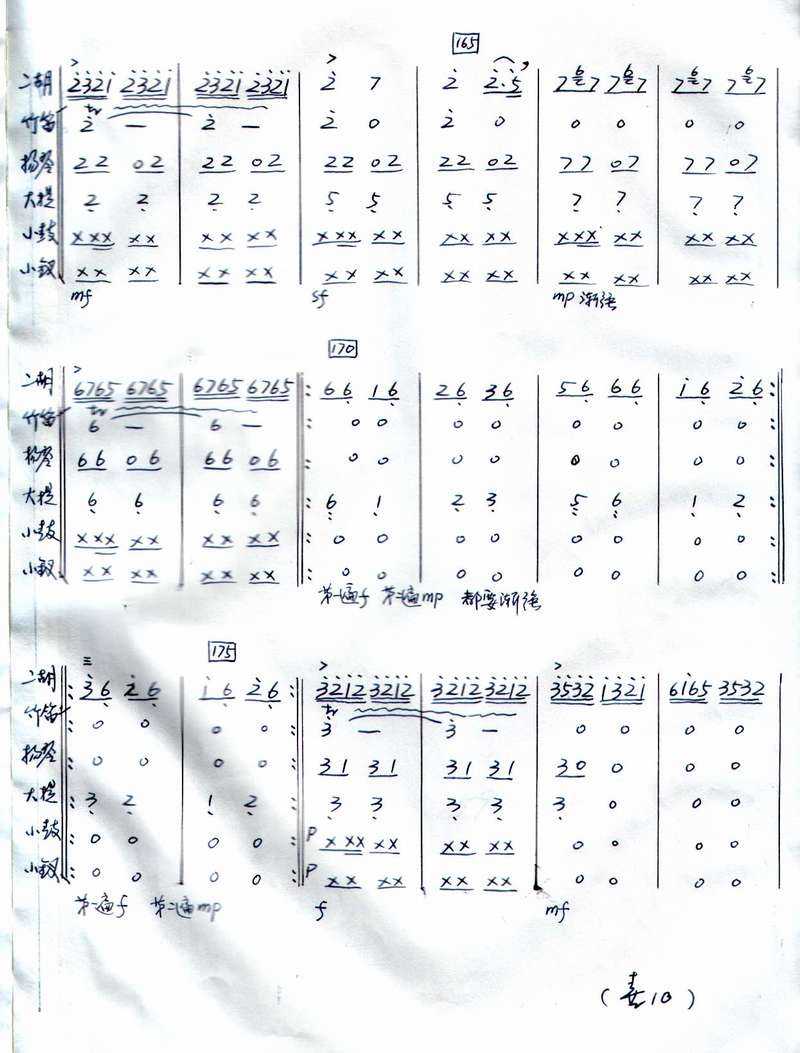 165
二胡 2321 2321 | 2321 2321 | 2 7 | 2 2·5 | 7 6 7 7 6 7 | 7 6 7 7 6 7
竹笛 tr 2 — | 2 — | 2 0 | 2 0 | 0 0 | 0 0
扬琴 22 02 | 22 02 | 22 02 | 22 02 | 77 07 | 77 07
大提 2 2 | 2 2 | 5 5 | 5 5 | 7 7 | 7 7
小鼓 xxx xx | xx xx | xxx xx | xx xx | xxx xx | xx xx
小钗 xx xx | xx xx | xx xx | xx xx | xx xx | xx xx
mf sf mp 渐强
170
二胡 6765 6765 | 6765 6765 |: 66 16 | 26 36 | 56 66 | 16 26 :|
竹笛 tr 6 — | 6 — |: 0 0 | 0 0 | 0 0 | 0 0 :|
扬琴 66 06 | 66 06 |: 0 0 | 0 0 | 0 0 | 0 0 :|
大提 6 6 | 6 6 |: 6 1 | 2 3 | 5 6 | 1 2 :|
小鼓 xxx xx | xx xx |: 0 0 | 0 0 | 0 0 | 0 0 :|
小钗 xx xx | xx xx |: 0 0 | 0 0 | 0 0 | 0 0 :|
第一遍f 第二遍mp 都要渐强
三 175
二胡 |: 36 26 | 16 26 :| 3212 3212 | 3212 3212 | 3532 1321 | 6165 3532
竹笛 |: 0 0 | 0 0 :| tr 3 — | 3 — | 0 0 | 0 0
扬琴 |: 0 0 | 0 0 :| 31 31 | 31 31 | 30 0 | 0 0
大提 |: 3 2 | 1 2 :| 3 3 | 3 3 | 3 0 | 0 0
小鼓 |: 0 0 | 0 0 :| p xxx xx | xx xx | 0 0 | 0 0
小钗 |: 0 0 | 0 0 :| p xx xx | xx xx | 0 0 | 0 0
第一遍f 第二遍mp f mf
(春10)